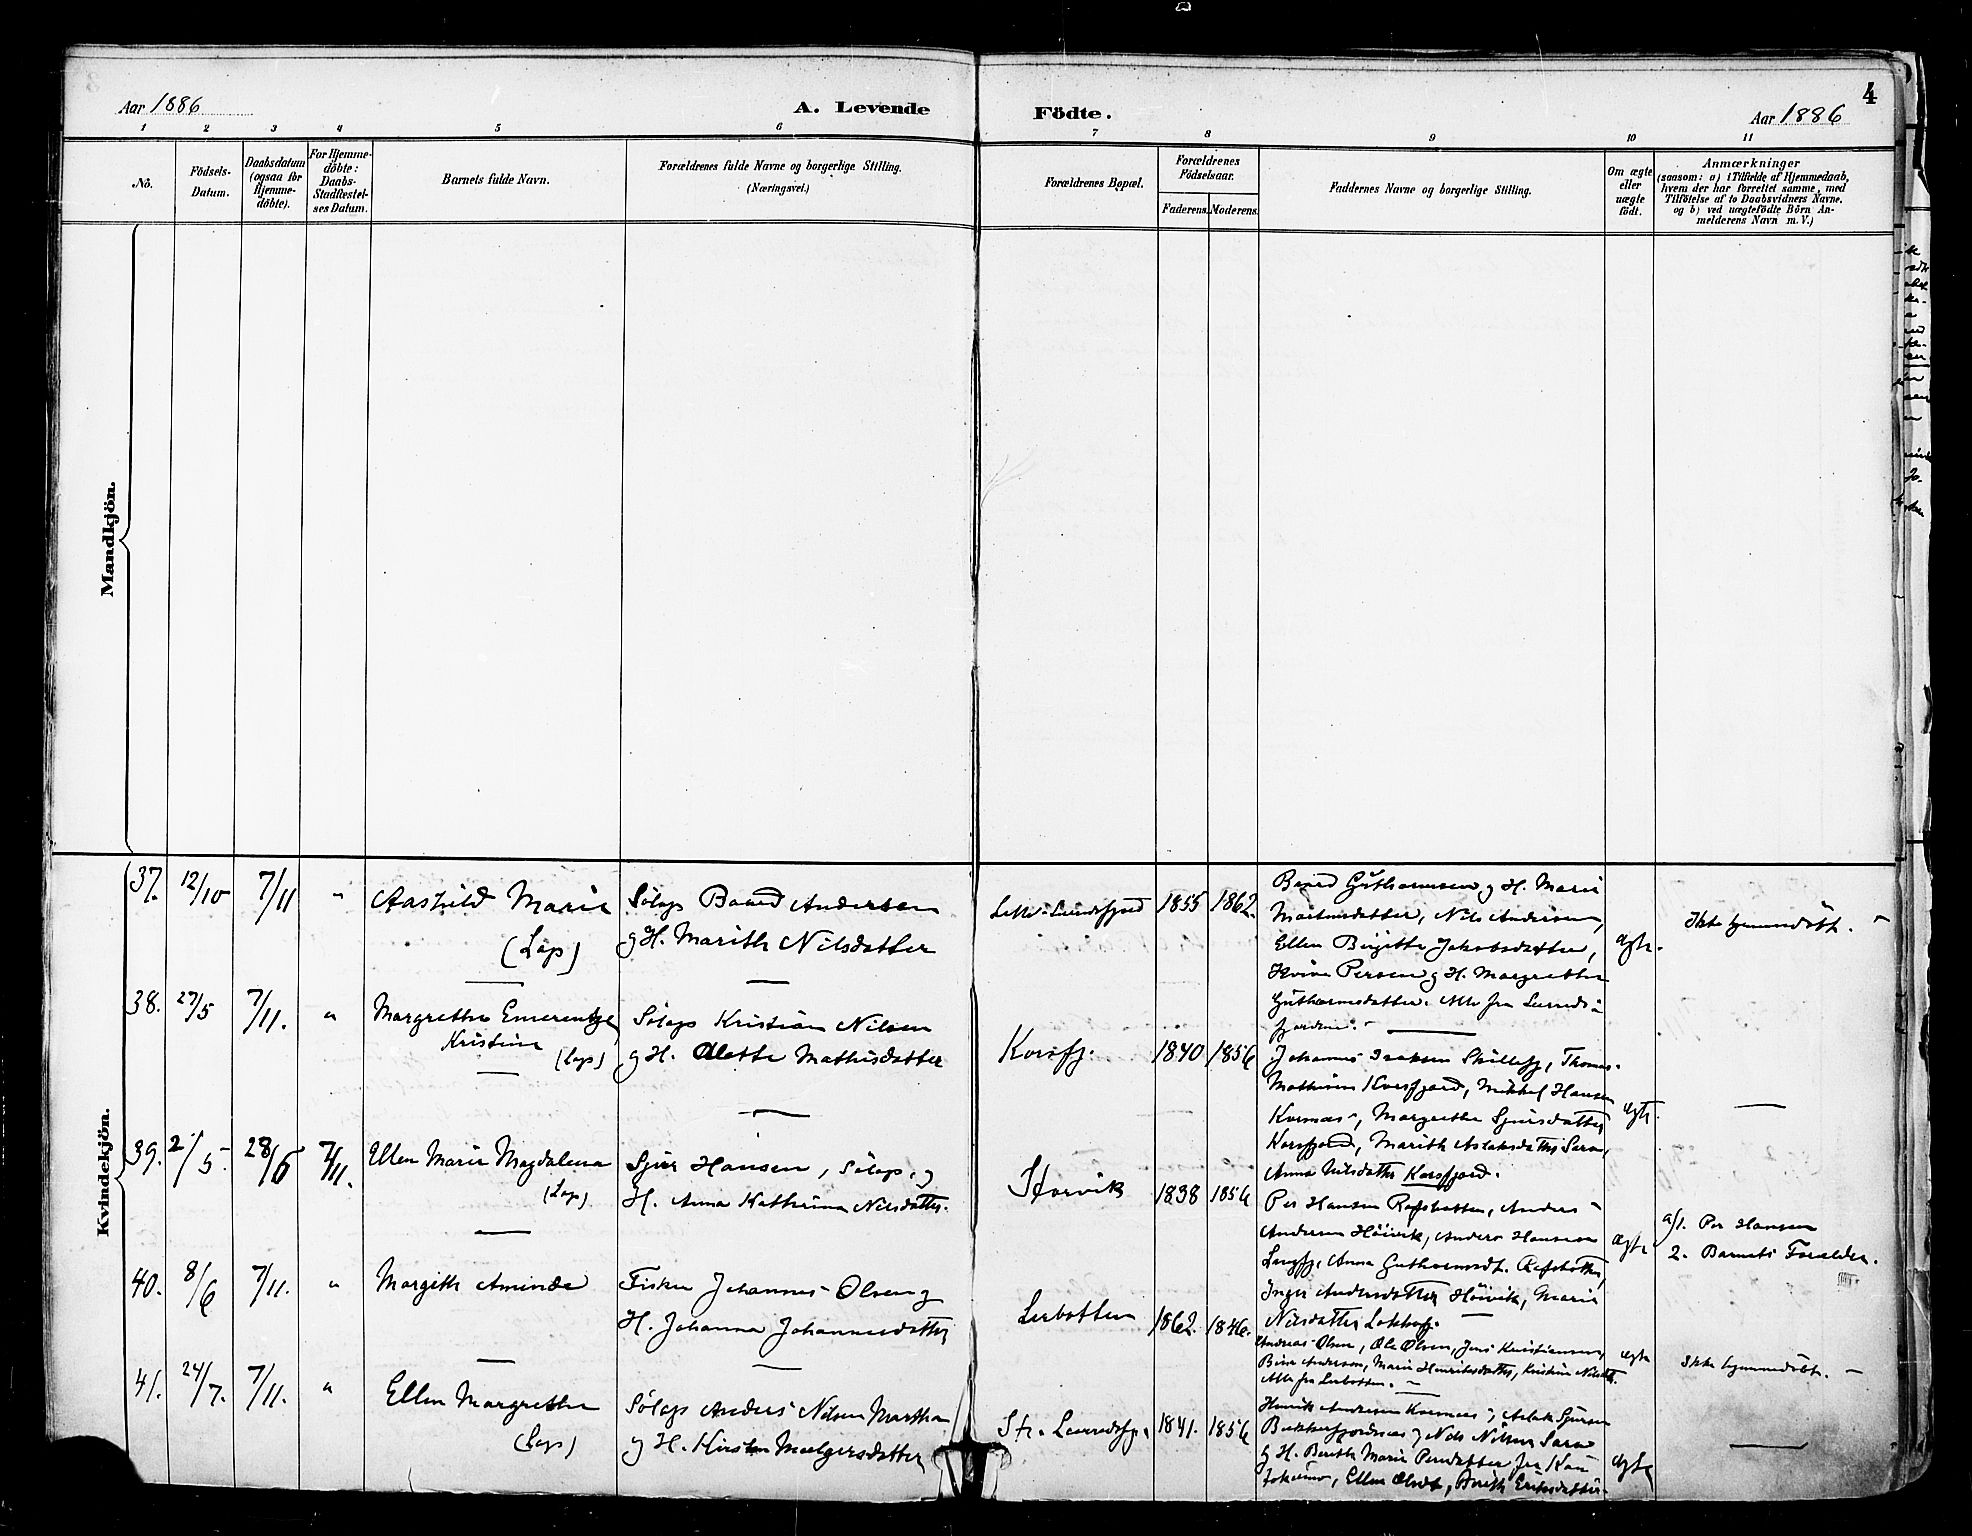 4
Aar 1886
A. Levende
Födte.
Aar 1886
1 2 3 4 5 6 7 8 9 10 11
No.
Födsels-
Datum.
Daabsdatum
(ogsaa for
Hjemme-
döbte).
For Hjemme-
döbte:
Daabs-
Stadfæstel-
ses Datum.
Barnets fulde Navn.
Forældrenes fulde Navne og borgerlige Stilling.
(Næringsvei.)
Forældrenes Bopæl.
Forældrenes
Födselsaar.
Faderens. Moderens.
Faddernes Navne og borgerlige Stilling.
Om ægte
eller
uægte
födt.
Anmærkninger
(saasom: a) i Tilfælde af Hjemmedaab,
hvem der har forrettet samme, med
Tilföielse af to Daabsvidners Navne,
og b) ved uægtefödte Börn An-
melderens Navn m. V.)
Mandkjön.
Kvindekjön.
37. 12/10 7/11 " Aashild Marie
(Lap)
Sölap Baard Andersen
g H. Marith Nilsdatter
1855 1862.
Baard Guthormsen g H. Marie
Mortensdatter, Nils Andersen,
Ellen Birgitte Jakobsdatter,
Persen g H. Margrethe
Guthormsdatter. Alle fra Leirds-
fjorden.
ægte.
Ikke hjemmedöbt. -
38. 27/5 7/11. " Margrethe Emerentze
Kristine
(Lap)
Sölap Kristian Nilsen
g H. Alette Mathisdatter
Korsfj. 1840 1856
Johannes Isaksen Skillefj., Thomas
Mathisen Korsfjord, Mikkel Hansen
Kornæs, Margrethe Sjursdatter
Korsfjord, Marith Aslaksdatter Sara,
Anna Nilsdatter Korsfjord.
ægte.
39. 2/5. 28/6 7/11. Ellen Marie Magdalena
(Lap)
Sjur Hansen, Sölap, g
H. Anna Katherina Nilsdatter.
Storvik 1838 1856
Per Hansen Rafsbotten, Anders
Andersen Höivik, Anders Hansen
Langfj., Anna Guthormsdt. Rafsbotten,
Inger Andersdatter Höivik, Marie
Nilsdatter
ægte
a/1. Per Hansen
2. Barnets Forældre.
40. 8/6 7/11. " Margith Aminda
Fisker Johannes Olsen g
H. Johanna Johannesdatter
Leirbotten 1862. 1846.
Andreas Olsen, Ole Olsen, Jens Kristiansen,
Andersen, Marie Henriksdatter, Kristine
Alle fra Leirbotten.
ægte
Ikke hjemmedöbt. -
41. 24/7. 7/11. " Ellen Margrethe
(Lap)
Sölap Anders Nilsen
g H. Kirsten
St. Leerredsfj. 1841. 1856
Henrik Andersen Kornæs, Aslak Sjursen
g Nils Nilsen Sara
g H. Berith Marie Persdatter fra Kau
tokeino, Ellen Olsdt., Berith Eriksdatter
ægte